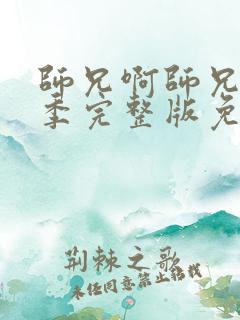 師兄啊師兄
季完整版免
荆棘之歌
未经同意禁止转载